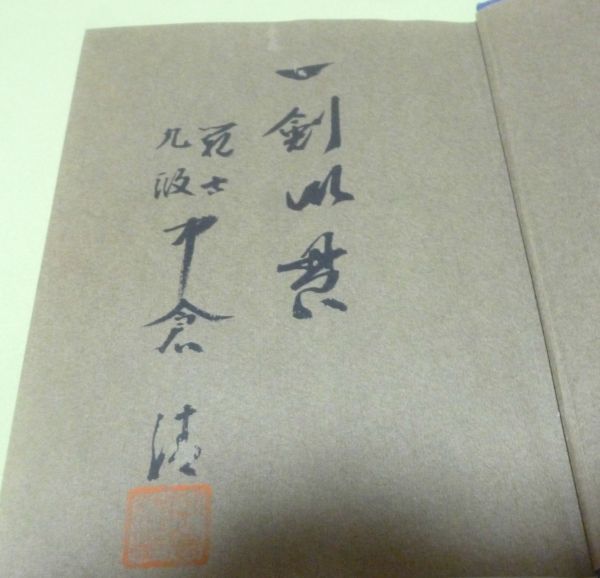 一剣以貫
範士
九段
中倉 清